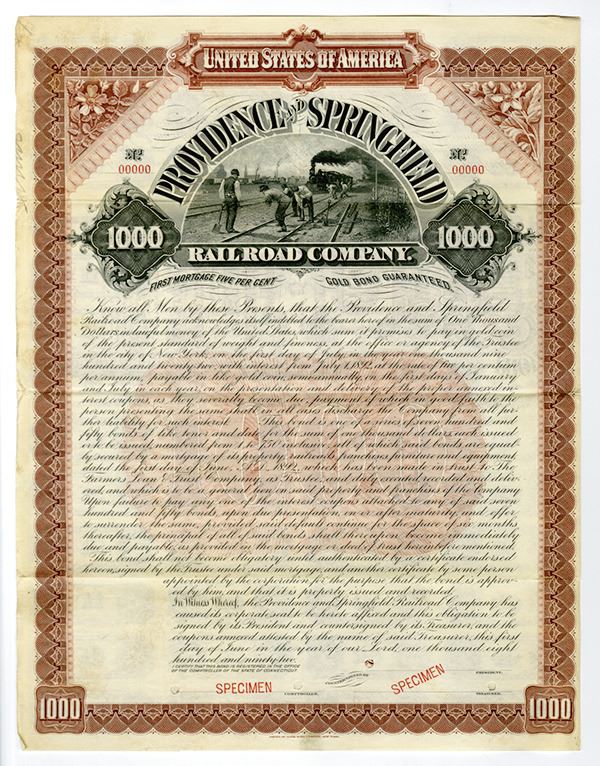 UNITED STATES OF AMERICA
PROVIDENCE AND SPRINGFIELD
No No
00000 00000
1000 1000
RAILROAD COMPANY.
FIRST MORTGAGE FIVE PER CENT GOLD BOND GUARANTEED
Know all Men by these Presents, that the Providence and Springfield
Railroad Company acknowledges itself indebted to the bearer hereof in the sum of One Thousand
Dollars, in lawful money of the United States, which sum it promises to pay in gold coin
of the present standard of weight and fineness, at the office or agency of the Trustee
in the city of New York, on the first day of July, in the year one thousand nine
hundred and twenty two, with interest from July 1, 1892, at the rate of five per centum
per annum, payable in like gold coin, semi-annually, on the first days of January
and July in each year, on the presentation and delivery of the proper annexed in-
terest coupons, as they severally become due, payment of which in good faith to the
person presenting the same shall in all cases discharge the Company from all fur-
ther liability for such interest. This bond is one of a series of seven hundred and
fifty bonds of like tenor and date for the sum of one thousand dollars each issued
or to be issued, numbered from 1 to 750 inclusive, all of which said bonds are equal-
ly secured by a mortgage of its property, railroad, franchises, furniture and equipment,
dated the first day of June, 1892, which has been made in trust to The
Farmers Loan & Trust Company, as Trustee, and duly executed, recorded and deliv-
ered, and which is to be a general lien on said property and franchises of the Company
Upon failure to pay any one of the interest coupons attached to any of said seven
hundred and fifty bonds, upon due presentation, on or after maturity, and offer
to surrender the same, provided said default continue for the space of six months
thereafter, the principal of all of said bonds shall thereupon become immediately
due and payable as provided in the mortgage or deed of trust hereinbefore mentioned.
This bond shall not become obligatory until authenticated by a certificate endorsed
hereon, signed by the Trustee under said mortgage, and another certificate by some person
appointed by the corporation for the purpose that the bond is approv-
ed by him, and that it is properly issued and recorded.
In Witness Whereof, the Providence and Springfield Railroad Company has
caused its corporate seal to be hereto affixed and this obligation to be
signed by its President and countersigned by its Treasurer, and the
coupons annexed attested by the name of said Treasurer, this first
day of June in the year of our Lord, one thousand eight
hundred and ninety-two.
I CERTIFY THAT THIS BOND IS REGISTERED IN THE OFFICE
OF THE COMPTROLLER OF THE STATE OF CONNECTICUT
COUNTERSIGNED BY PRESIDENT.
SPECIMEN SPECIMEN
COMPTROLLER. TREASURER.
1000 1000